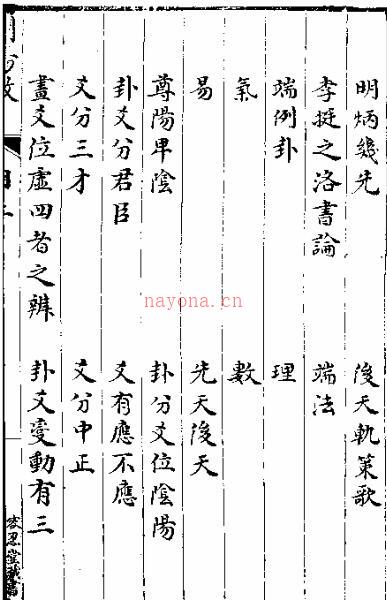 明炳幾先　後天軌策歌
李挺之洛書論　端法
端例卦　理
氣　數
易　先天後天
尊陽卑陰　卦分爻位陰陽
卦爻分君臣　爻有應不應
爻分三才　爻分中正
畫爻位虛四者之辨　卦爻變動有三
nayona.cn